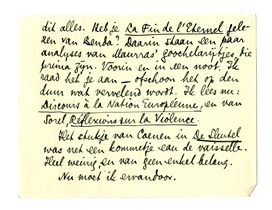 dit alles. Heb je La Fin de l'Eternel gele-
zen van Benda? Daarin staan een paar
analyses van Maurras' goochelarijtjes, die
prima zijn. Voorin en in een noot. Ik
raad het je aan – ofschoon het op den
duur wat vervelend wordt. Ik lees nu:
Discours à la Nation Européenne, en van
Sorel, Réflexions sur la Violence.
Het stukje van Coenen in De Sleutel
was net een kommetje aan de vaisselle.
Heel weinig en van geen enkel belang.
Nu moet ik ervandoor.